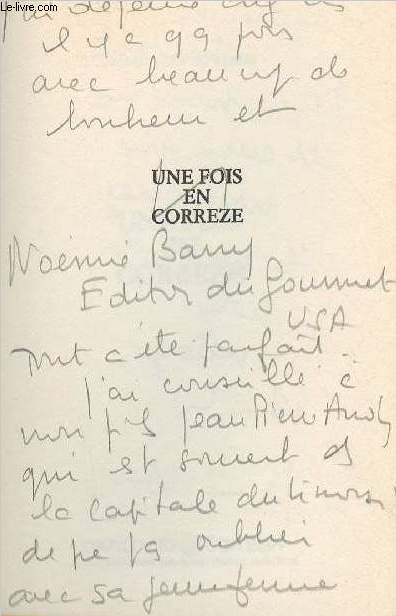 Le-livre.com
j'ai déjeuné
il y a qq
avec beaucoup de
bonheur et
UNE FOIS
EN
CORREZE
Noémie Barry
Editor du Gourmet
USA
Tout a été parfait..
j'ai conseillé à
mon fils Jean Pierre
qui est souvent ds
la capitale du Limousin
de ne pas oublier
avec sa jeune femme